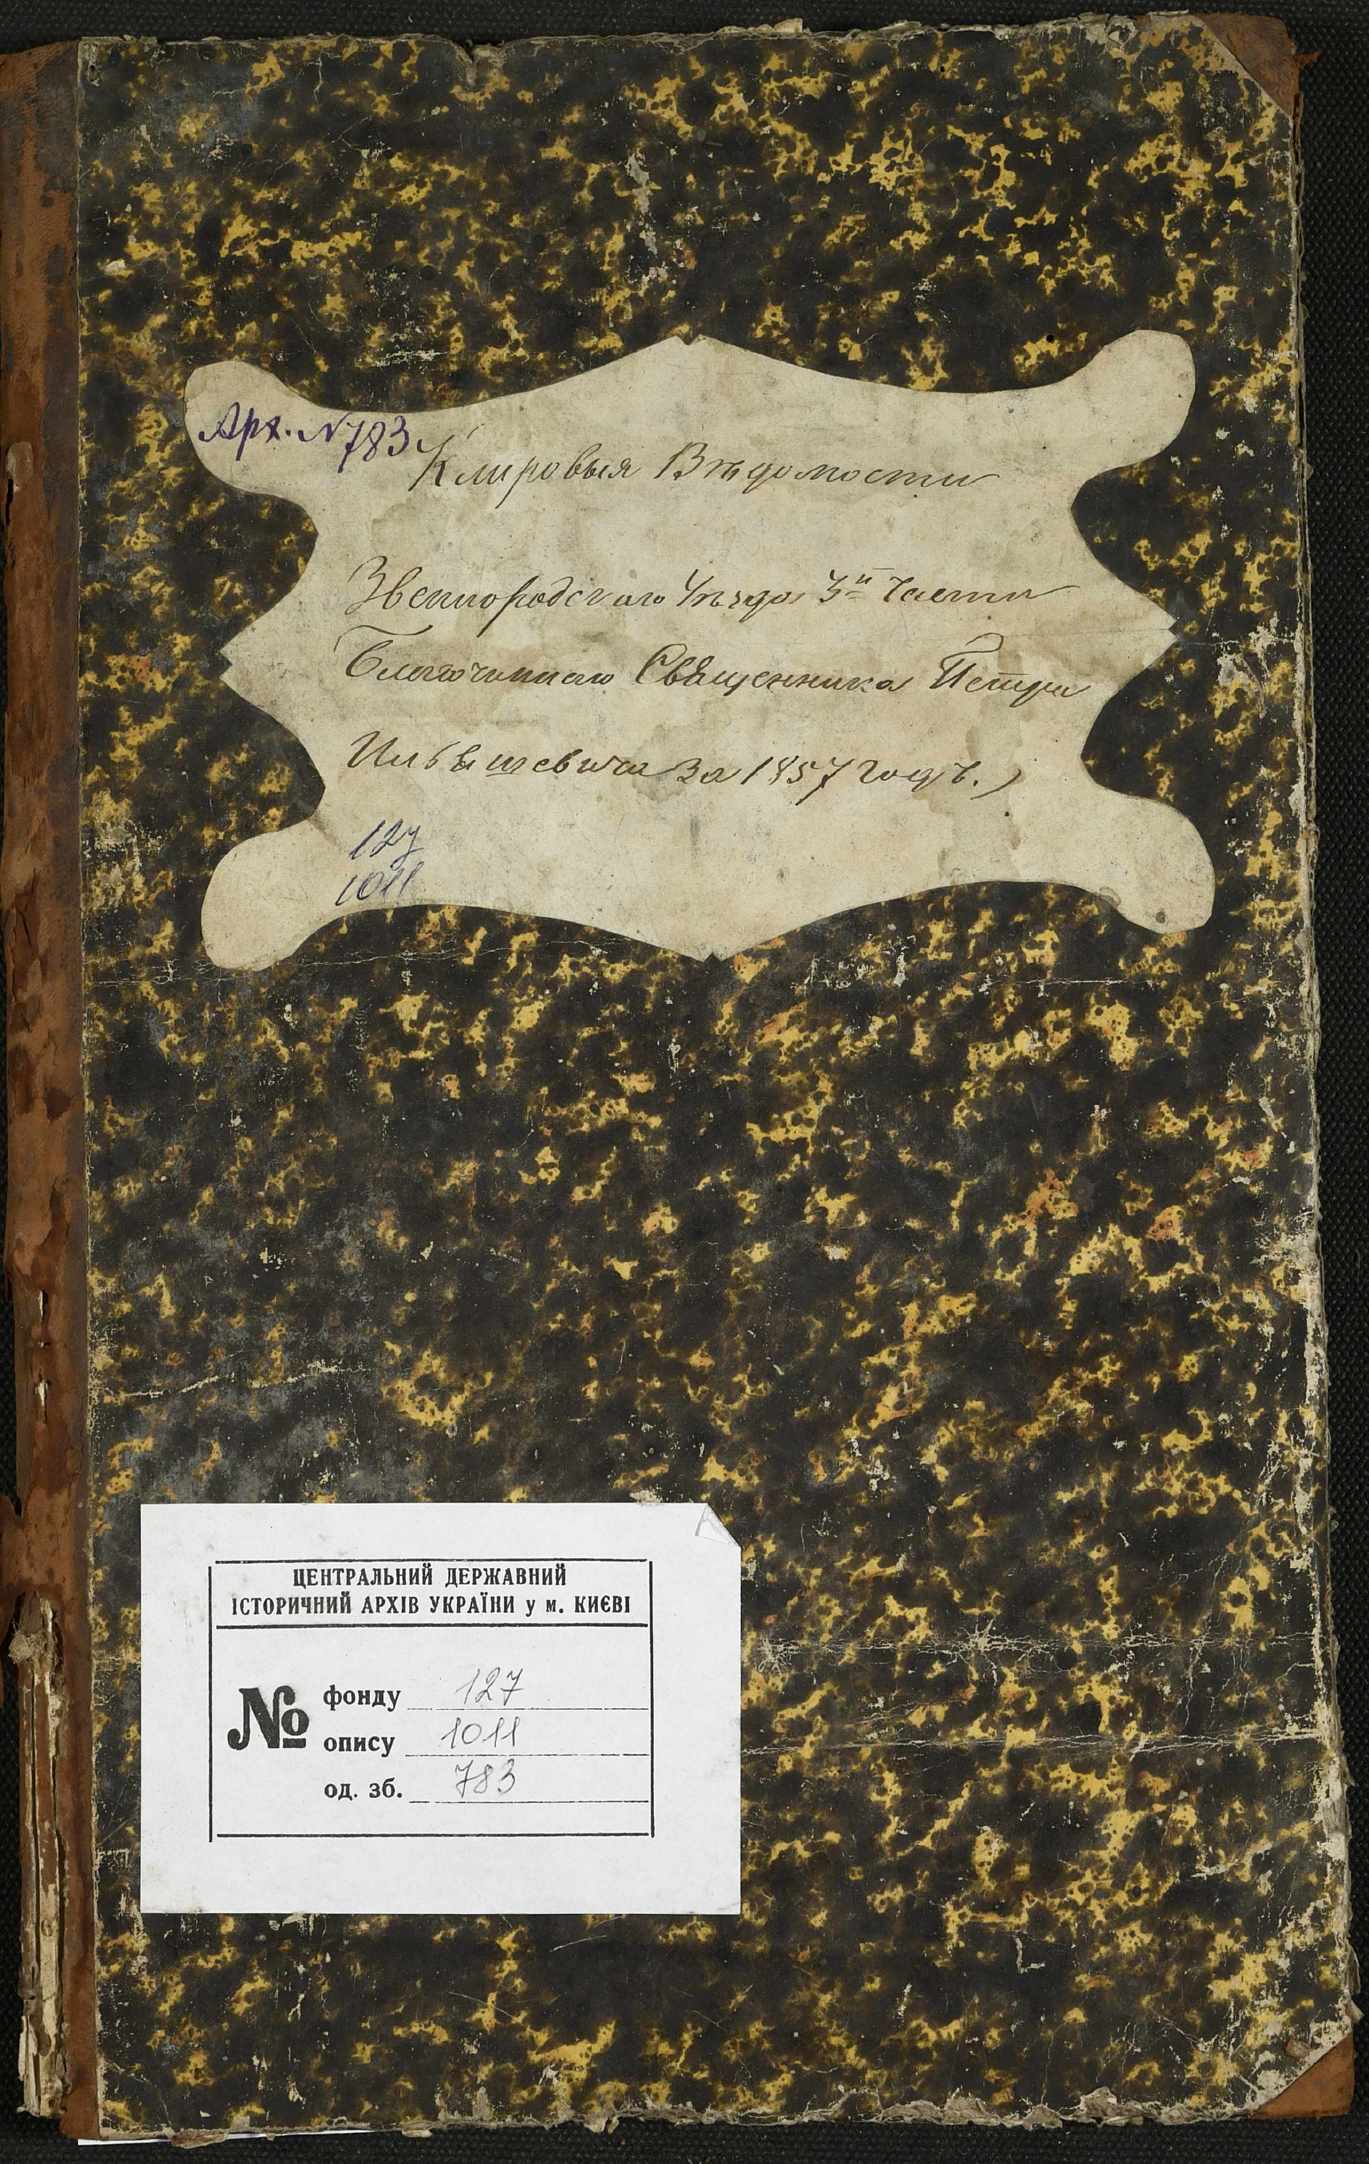 Арх. №783
Клировыя Вѣдомости
Звенигородскаго Уѣзда 3й Части
Благочиннаго Священника Петра
за 1857 годъ.
127
1011
ЦЕНТРАЛЬНИЙ ДЕРЖАВНИЙ
ІСТОРИЧНИЙ АРХІВ УКРАЇНИ у м. КИЄВІ
№
фонду 127
опису 1011
од. зб. 783